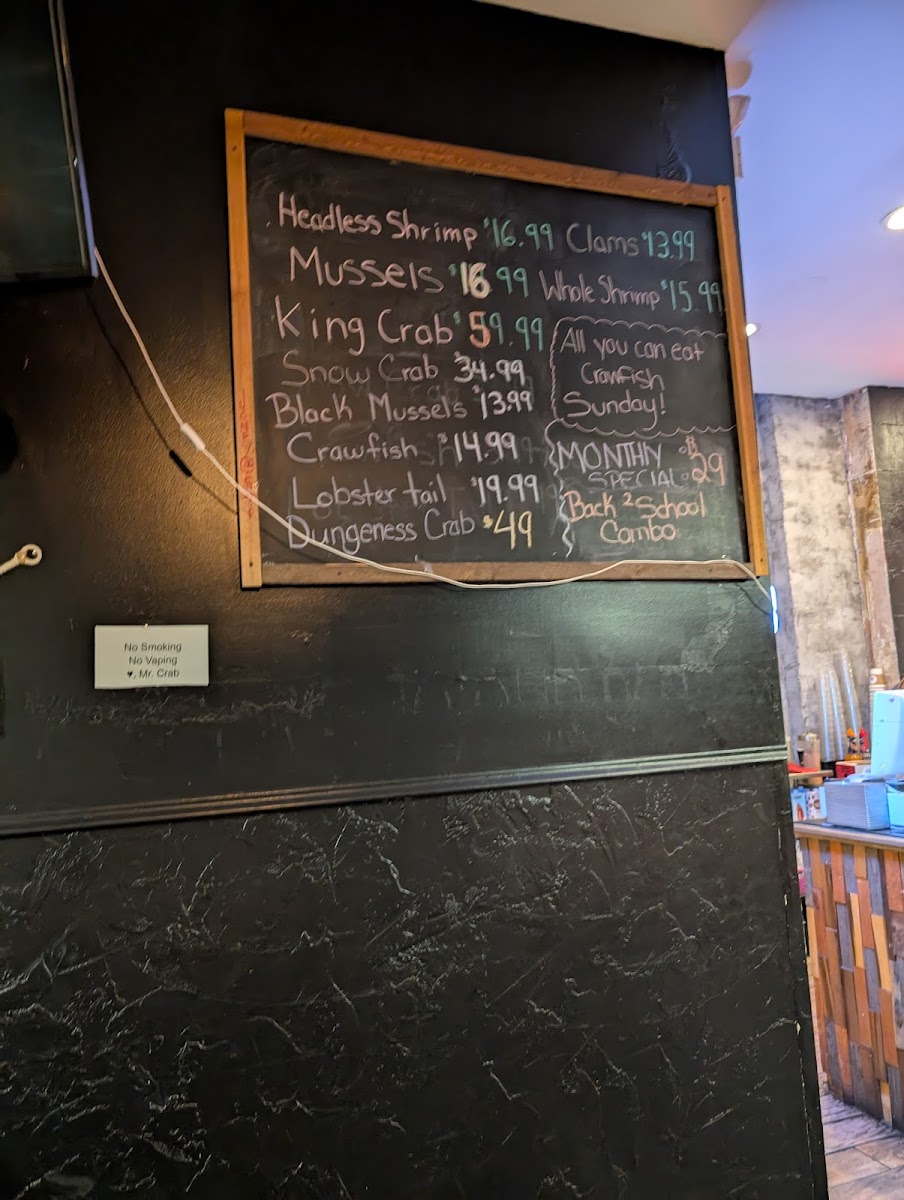 Headless Shrimp $16.99 Clams $13.99
Mussels $16.99 Whole Shrimp $15.99
King Crab $59.99
Snow Crab $34.99
Black Mussels $13.99
Crawfish $14.99
Lobster tail $19.99
Dungeness Crab $49
All you can eat
Crawfish
Sunday!
MONTHY $29
SPECIAL
Back 2 School
Combo
No Smoking
No Vaping
♥, Mr. Crab